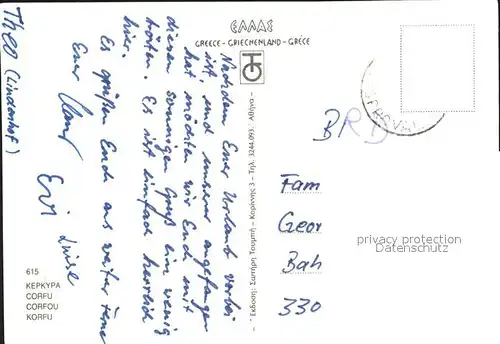 ΕΛΛΑΣ
GREECE - GRIECHENLAND - GRÈCE
Nachdem Euer Urlaub vorbei
ist, und unserer angefangen
hat, möchten wir Euch mit
diesem sonnigen Gruß ein wenig
trösten. Es ist einfach herrlich
hier.
Es grüßen Euch aus weiter Ferne
Euer
Evi Luise
Theo (Lindenhof)
Έκδοση: Σωτήρη Τουμπή - Καρύτσης 3 - Τηλ. 3244.693. Αθήνα
BRD
Fam
Geor
Bah
330
privacy protection
Datenschutz
615
ΚΕΡΚΥΡΑ
CORFU
CORFOU
KORFU